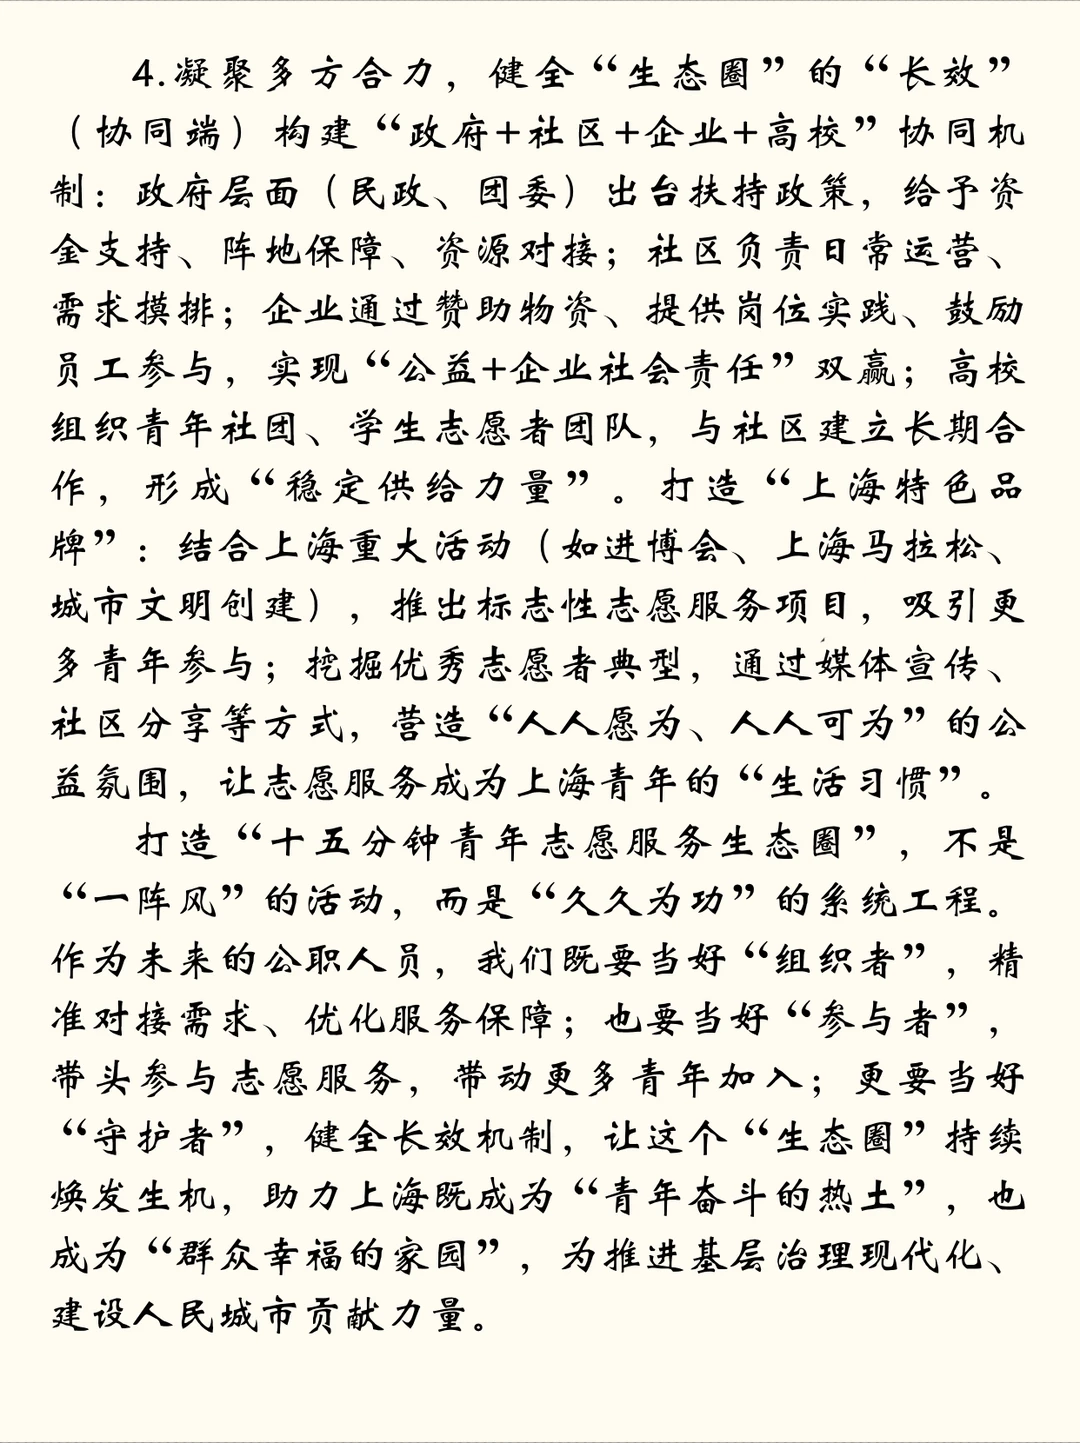 4.凝聚多方合力，健全“生态圈”的“长效”
（协同端）构建“政府+社区+企业+高校”协同机
制：政府层面（民政、团委）出台扶持政策，给予资
金支持、阵地保障、资源对接；社区负责日常运营、
需求摸排；企业通过赞助物资、提供岗位实践、鼓励
员工参与，实现“公益+企业社会责任”双赢；高校
组织青年社团、学生志愿者团队，与社区建立长期合
作，形成“稳定供给力量”。打造“上海特色品
牌”：结合上海重大活动（如进博会、上海马拉松、
城市文明创建），推出标志性志愿服务项目，吸引更
多青年参与；挖掘优秀志愿者典型，通过媒体宣传、
社区分享等方式，营造“人人愿为、人人可为”的公
益氛围，让志愿服务成为上海青年的“生活习惯”。
打造“十五分钟青年志愿服务生态圈”，不是
“一阵风”的活动，而是“久久为功”的系统工程。
作为未来的公职人员，我们既要当好“组织者”，精
准对接需求、优化服务保障；也要当好“参与者”，
带头参与志愿服务，带动更多青年加入；更要当好
“守护者”，健全长效机制，让这个“生态圈”持续
焕发生机，助力上海既成为“青年奋斗的热土”，也
成为“群众幸福的家园”，为推进基层治理现代化、
建设人民城市贡献力量。